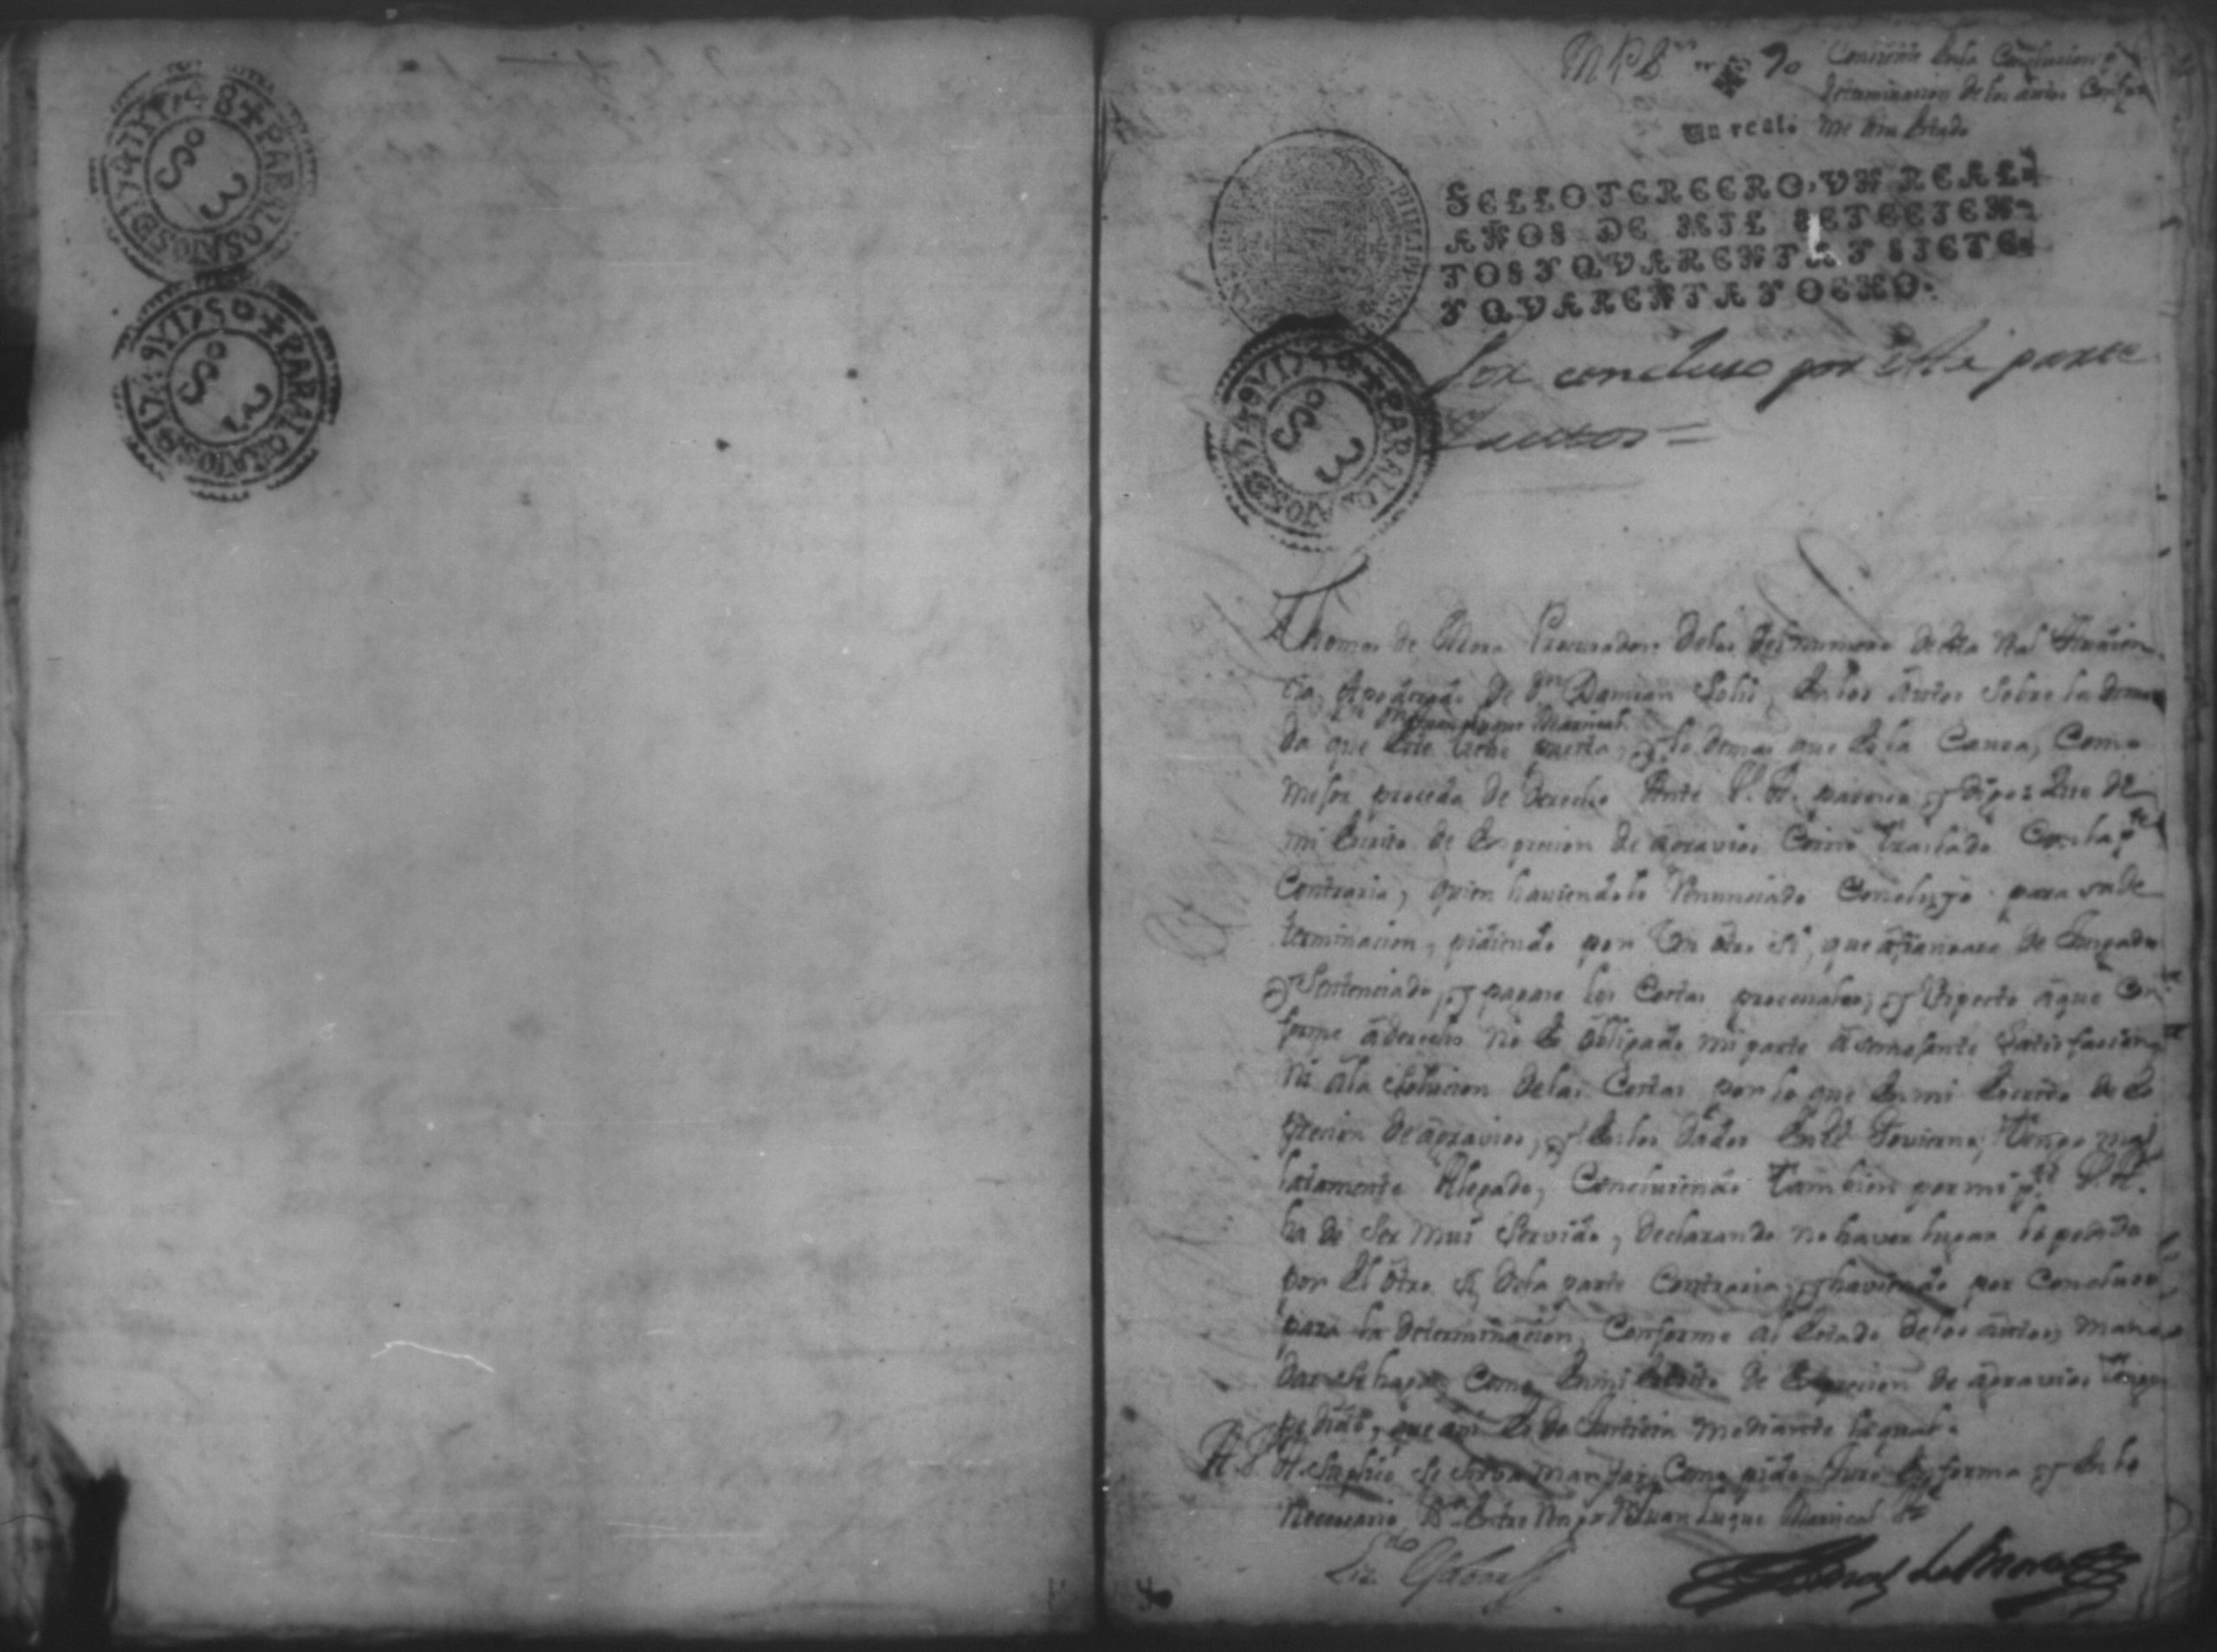 ✠PARALOSAÑOSD1747Y1748
SO 3
✠PARALOSAÑOSD1749Y1750
SO 3
M P S
Consiente en la Conclusion y
determinacion de los autos Conforme
Un real. me a su estado
SELLO TERCERO, VN REAL,
AÑOS DE MIL SETECIEN-
TOS Y QVARENTA Y SIETE,
Y QVARENTA Y OCHO.
✠PARALOSAÑOSD1749Y1750
SO 3
Por concluso por esta parte
y autos =
Thomas de Mora Procurador de los del numero de esta Rl Audien
cia, Apoderado de Dn Damian Solis, en los autos sobre la deman
pr Dn Juan Luque Mariscal
da que este tiene puesta, y lo demas que es la Causa, Como
mejor proceda de derecho Ante V. A. paresco, y digo: Que de
mi escrito de Expresion de agravios Corrio traslado Con la pte
Contraria, quien haviendolo renunciado Concluyó para su de
terminacion, pidiendo por Un otro si, que afianzase de Jusgado
y Sentenciado, y pagase las Costas procesales, y respecto a que Con
forme a derecho no es obligado mi parte a semejante satisfacion,
ni a la solucion de las Costas por lo que en mi Escrito de Es
presion de agravios, y en los dados en este Govierno, tengo
latamente Alegado, Concluiendo tambien por mi pte V. A.
ha de ser mui servido, declarando no haver lugar lo pedido
por el otro si, de la parte Contraria, y haviendo por Concluso
para la determinacion, Conforme al Estado de los autos, man
dar se haga, Como en mi Escrito de Expresion de agravios tengo
pedido, que asi es de Justicia mediante la qual.
A. V. A. suplico se sirva mandar, Como pido, Juro en forma y en lo
necesario Va Entre Rengs Dn Juan Luque Mariscal
Lizdo
Thomas de Mora